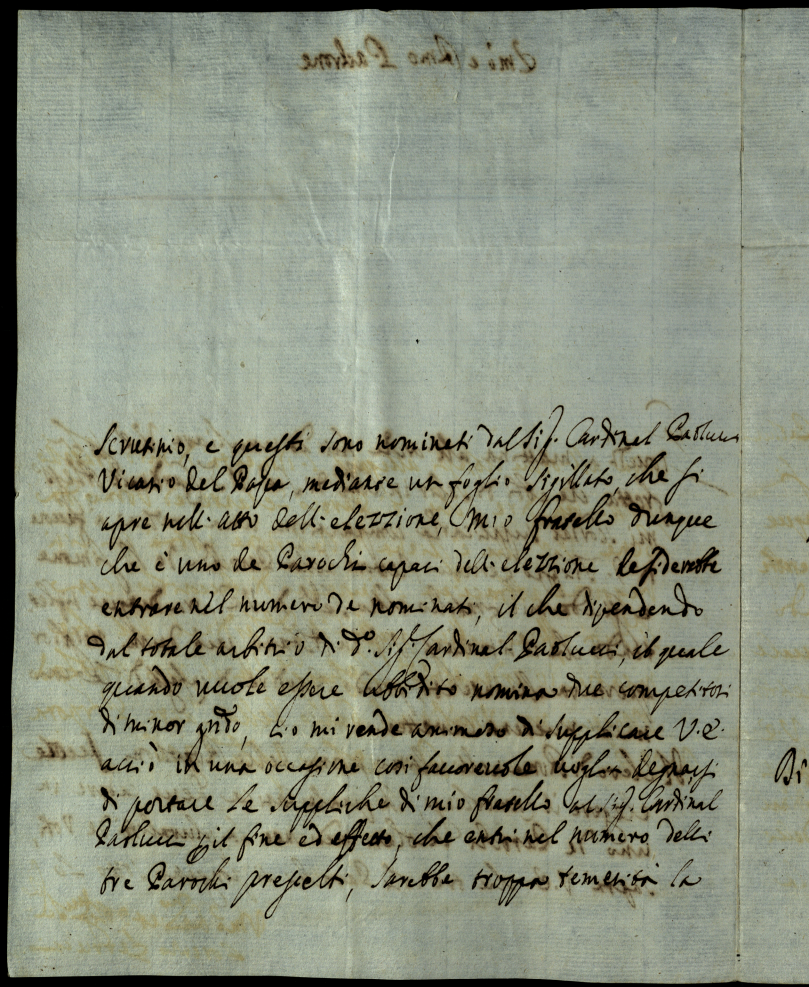 Scrutinio, e questi sono nominati dal Sig.r Cardinal Paolucci
Vicario del Papa, mediante un foglio sigillato, che si
apre nell'atto dell'elezzione, Mio fratello dunque
che è uno de Parochi capaci dell'elezzione desiderebbe
entrare nel numero de nominati, il che dipendendo
dal totale arbitrio di d.o Sig.r Cardinal Paolucci, il quale
quando vuole essere ubbidito nomina due competitori
di minor grido, ciò mi rende animoso di supplicare V.E.
acciò in una occasione così favorevole voglia degnarsi
di portare le suppliche di mio fratello al Sig.r Cardinal
Paolucci il fine ed effetto, che entri nel numero delli
tre Parochi prescelti, Sarebbe troppa temerità la
Bi